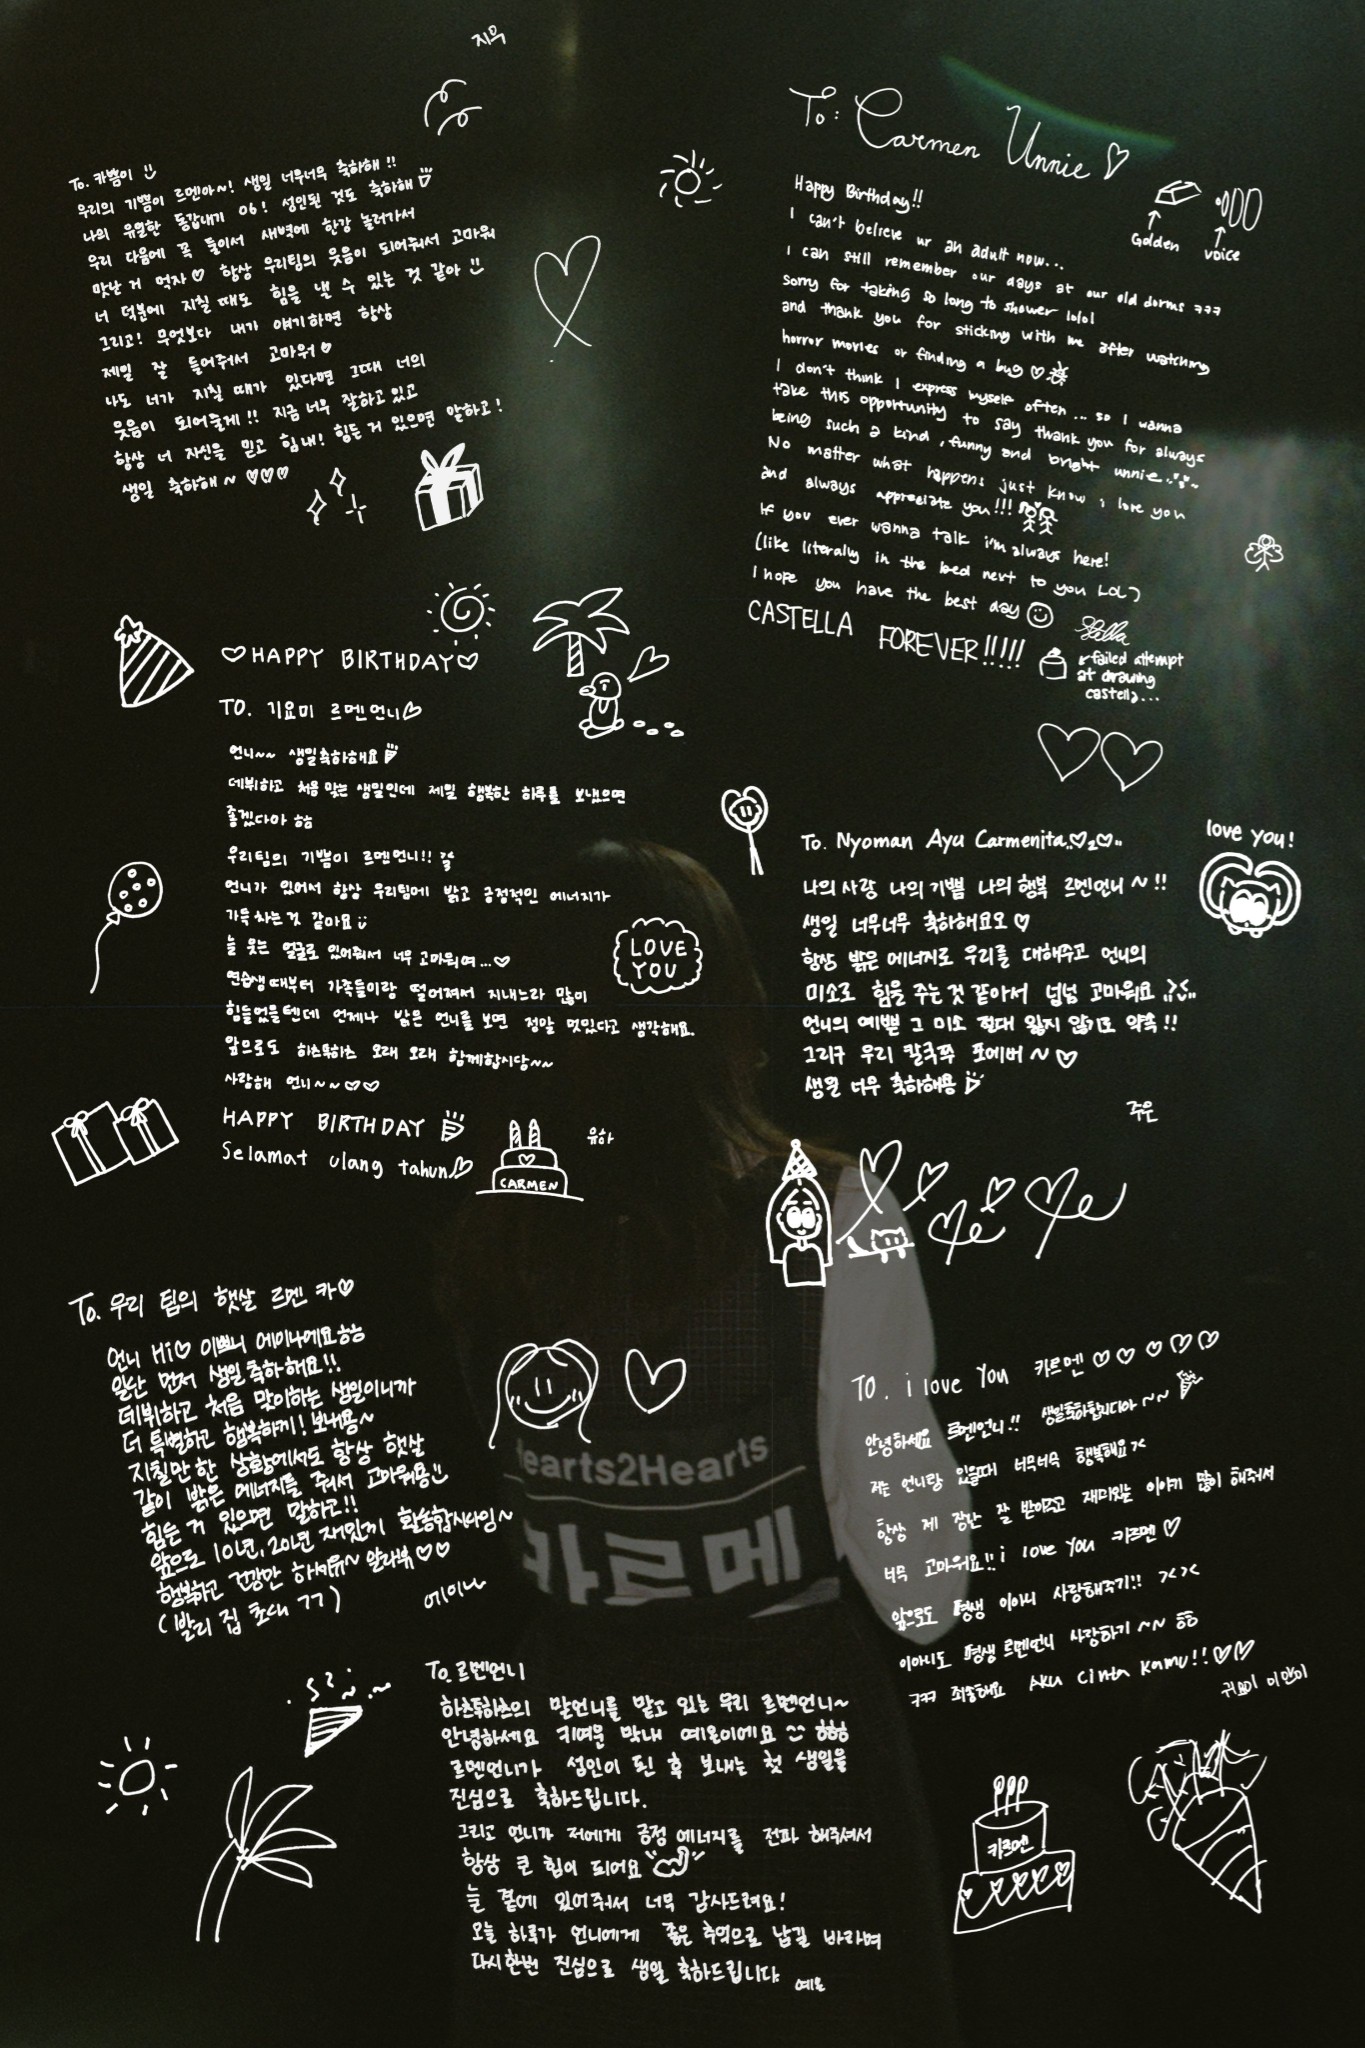 지우
To. 카쁨이
우리의 기쁨이 르멘아~! 생일 너무너무 축하해!!
나의 유일한 동갑내기 06! 성인된 것도 축하해
우리 다음에 꼭 둘이서 새벽에 한강 놀러가서
맛난 거 먹자♡ 항상 우리팀의 웃음이 되어줘서 고마워
너 덕분에 지칠 때도 힘을 낼 수 있는 것 같아
그리고! 무엇보다 내가 얘기하면 항상
제일 잘 들어줘서 고마워♡
나도 너가 지칠 때가 있다면 그때 너의
웃음이 되어줄게!! 지금 너무 잘하고 있고
항상 너 자신을 믿고 힘내! 힘든 거 있으면 말하고!
생일 축하해~ ♡♡♡
To: Carmen Unnie♡
Golden
voice
Happy Birthday!!
I can't believe ur an adult now...
I can still remember our days at our old dorms ㅋㅋㅋ
sorry for taking so long to shower lolol
and thank you for sticking with me after watching
horror movies or finding a bug♡
I don't think I express myself often... so I wanna
take this opportunity to say thank you for always
being such a kind, funny and bright unnie
No matter what happens just know i love you
and always appreciate you!!!
If you ever wanna talk i'm always here!
(like literaly in the bed next to you LOL)
I hope you have the best day
CASTELLA FOREVER!!!!!
Stella
failed attempt
at drawing
castella...
♡HAPPY BIRTHDAY♡
TO. 기요미 르멘언니♡
언니~~ 생일축하해요
데뷔하고 처음 맞는 생일인데 제일 행복한 하루를 보냈으면
좋겠다아 ㅎㅎ
우리팀의 기쁨이 르멘언니!!
언니가 있어서 항상 우리팀에 밝고 긍정적인 에너지가
가득 차는 것 같아요
늘 웃는 얼굴로 있어줘서 너무 고마워여...♡
연습생 때부터 가족들이랑 떨어져서 지내느라 많이
힘들었을텐데 언제나 밝은 언니를 보면 정말 멋있다고 생각해요.
앞으로도 하츠투하츠 오래 오래 함께합시당~~
사랑해 언니~~♡♡
HAPPY BIRTHDAY
Selamat ulang tahun♡
유하
CARMEN
LOVE
YOU
To. Nyoman Ayu Carmenita
love you!
나의 사랑 나의 기쁨 나의 행복 르멘언니~!!
생일 너무너무 축하해요오♡
항상 밝은 에너지로 우리를 대해주고 언니의
미소로 힘을 주는 것 같아서 넘넘 고마워요
언니의 예쁜 그 미소 절대 잃지 않기로 약속!!
그리구 우리 칼국쭈 포에버~♡
생일 너무 축하해용
주은
To. 우리 팀의 햇살 르멘 카♡
언니 Hi♡ 이쁘니 에이나예요ㅎㅎ
일단 먼저 생일축하해요!!
데뷔하고 처음 맞이하는 생일이니까
더 특별하고 행복하게! 보내용~
지칠만한 상황에서도 항상 햇살
같이 밝은 에너지를 줘서 고마워용
힘든 거 있으면 말하고!!
앞으로 10년, 20년 재밌게 활동합시다잉~
행복하고 건강만 하셔유~ 알라뷰♡♡
(발리 집 초대 ㄱㄱ)
에이나
Hearts2Hearts
카르메
TO. i love You 카르멘♡♡♡♡♡
안녕하세요 르멘언니!! 생일축하합니다아~~
저는 언니랑 있을때 너무너무 행복해요
항상 제 장난 잘 받아주고 재미있는 이야기 많이 해줘서
너무 고마워요!! i love You 카르멘♡
앞으로도 평생 이아니 사랑해주기!! ><><
이아니도 평생 르멘언니 사랑하기~~
ㅋㅋㅋ 죄송해요 Aku Cinta Kamu!!♡♡
귀요미 이안이
카르멘
To. 르멘언니
하츠투하츠의 맏언니를 맡고 있는 우리 르멘언니~
안녕하세요 귀여운 막내 예온이에요
르멘언니가 성인이 된 후 보내는 첫 생일을
진심으로 축하드립니다.
그리고 언니가 저에게 긍정 에너지를 전파 해주셔서
항상 큰 힘이 되어요
늘 곁에 있어주셔서 너무 감사드려요!
오늘 하루가 언니에게 좋은 추억으로 남길 바라며
다시한번 진심으로 생일 축하드립니다.
예온